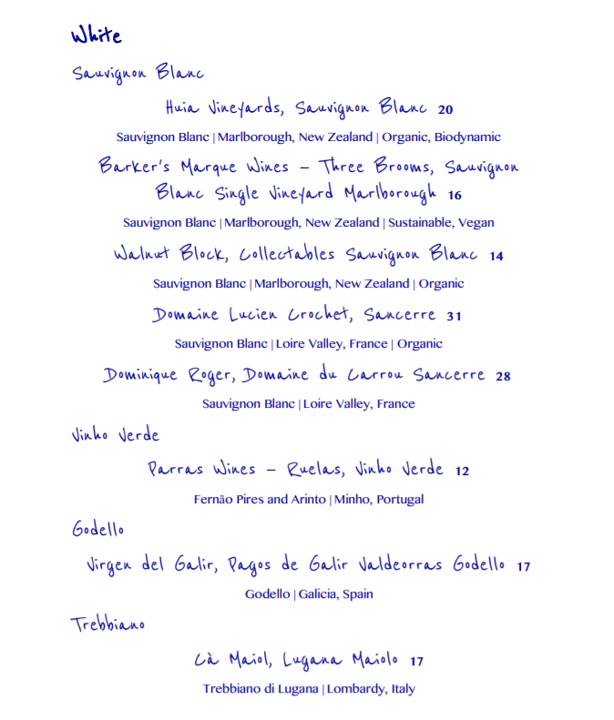 White
Sauvignon Blanc
Huia Vineyards, Sauvignon Blanc 20
Sauvignon Blanc | Marlborough, New Zealand | Organic, Biodynamic
Barker's Marque Wines – Three Brooms, Sauvignon
Blanc Single Vineyard Marlborough 16
Sauvignon Blanc | Marlborough, New Zealand | Sustainable, Vegan
Walnut Block, Collectables Sauvignon Blanc 14
Sauvignon Blanc | Marlborough, New Zealand | Organic
Domaine Lucien Crochet, Sancerre 31
Sauvignon Blanc | Loire Valley, France | Organic
Dominique Roger, Domaine du Carrou Sancerre 28
Sauvignon Blanc | Loire Valley, France
Vinho Verde
Parras Wines – Ruelas, Vinho Verde 12
Fernão Pires and Arinto | Minho, Portugal
Godello
Virgen del Galir, Pagos de Galir Valdeorras Godello 17
Godello | Galicia, Spain
Trebbiano
Cà Maiol, Lugana Maiolo 17
Trebbiano di Lugana | Lombardy, Italy